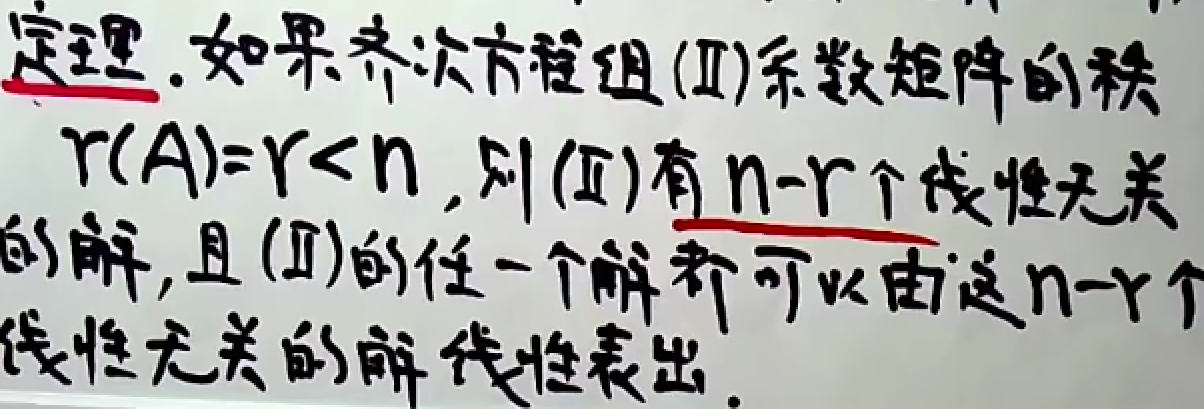 定理.如果齐次方程组(Ⅱ)系数矩阵的秩
r(A)=r<n,则(Ⅱ)有n-r个线性无关
的解,且(Ⅱ)的任一个解都可以由这n-r个
线性无关的解线性表出.